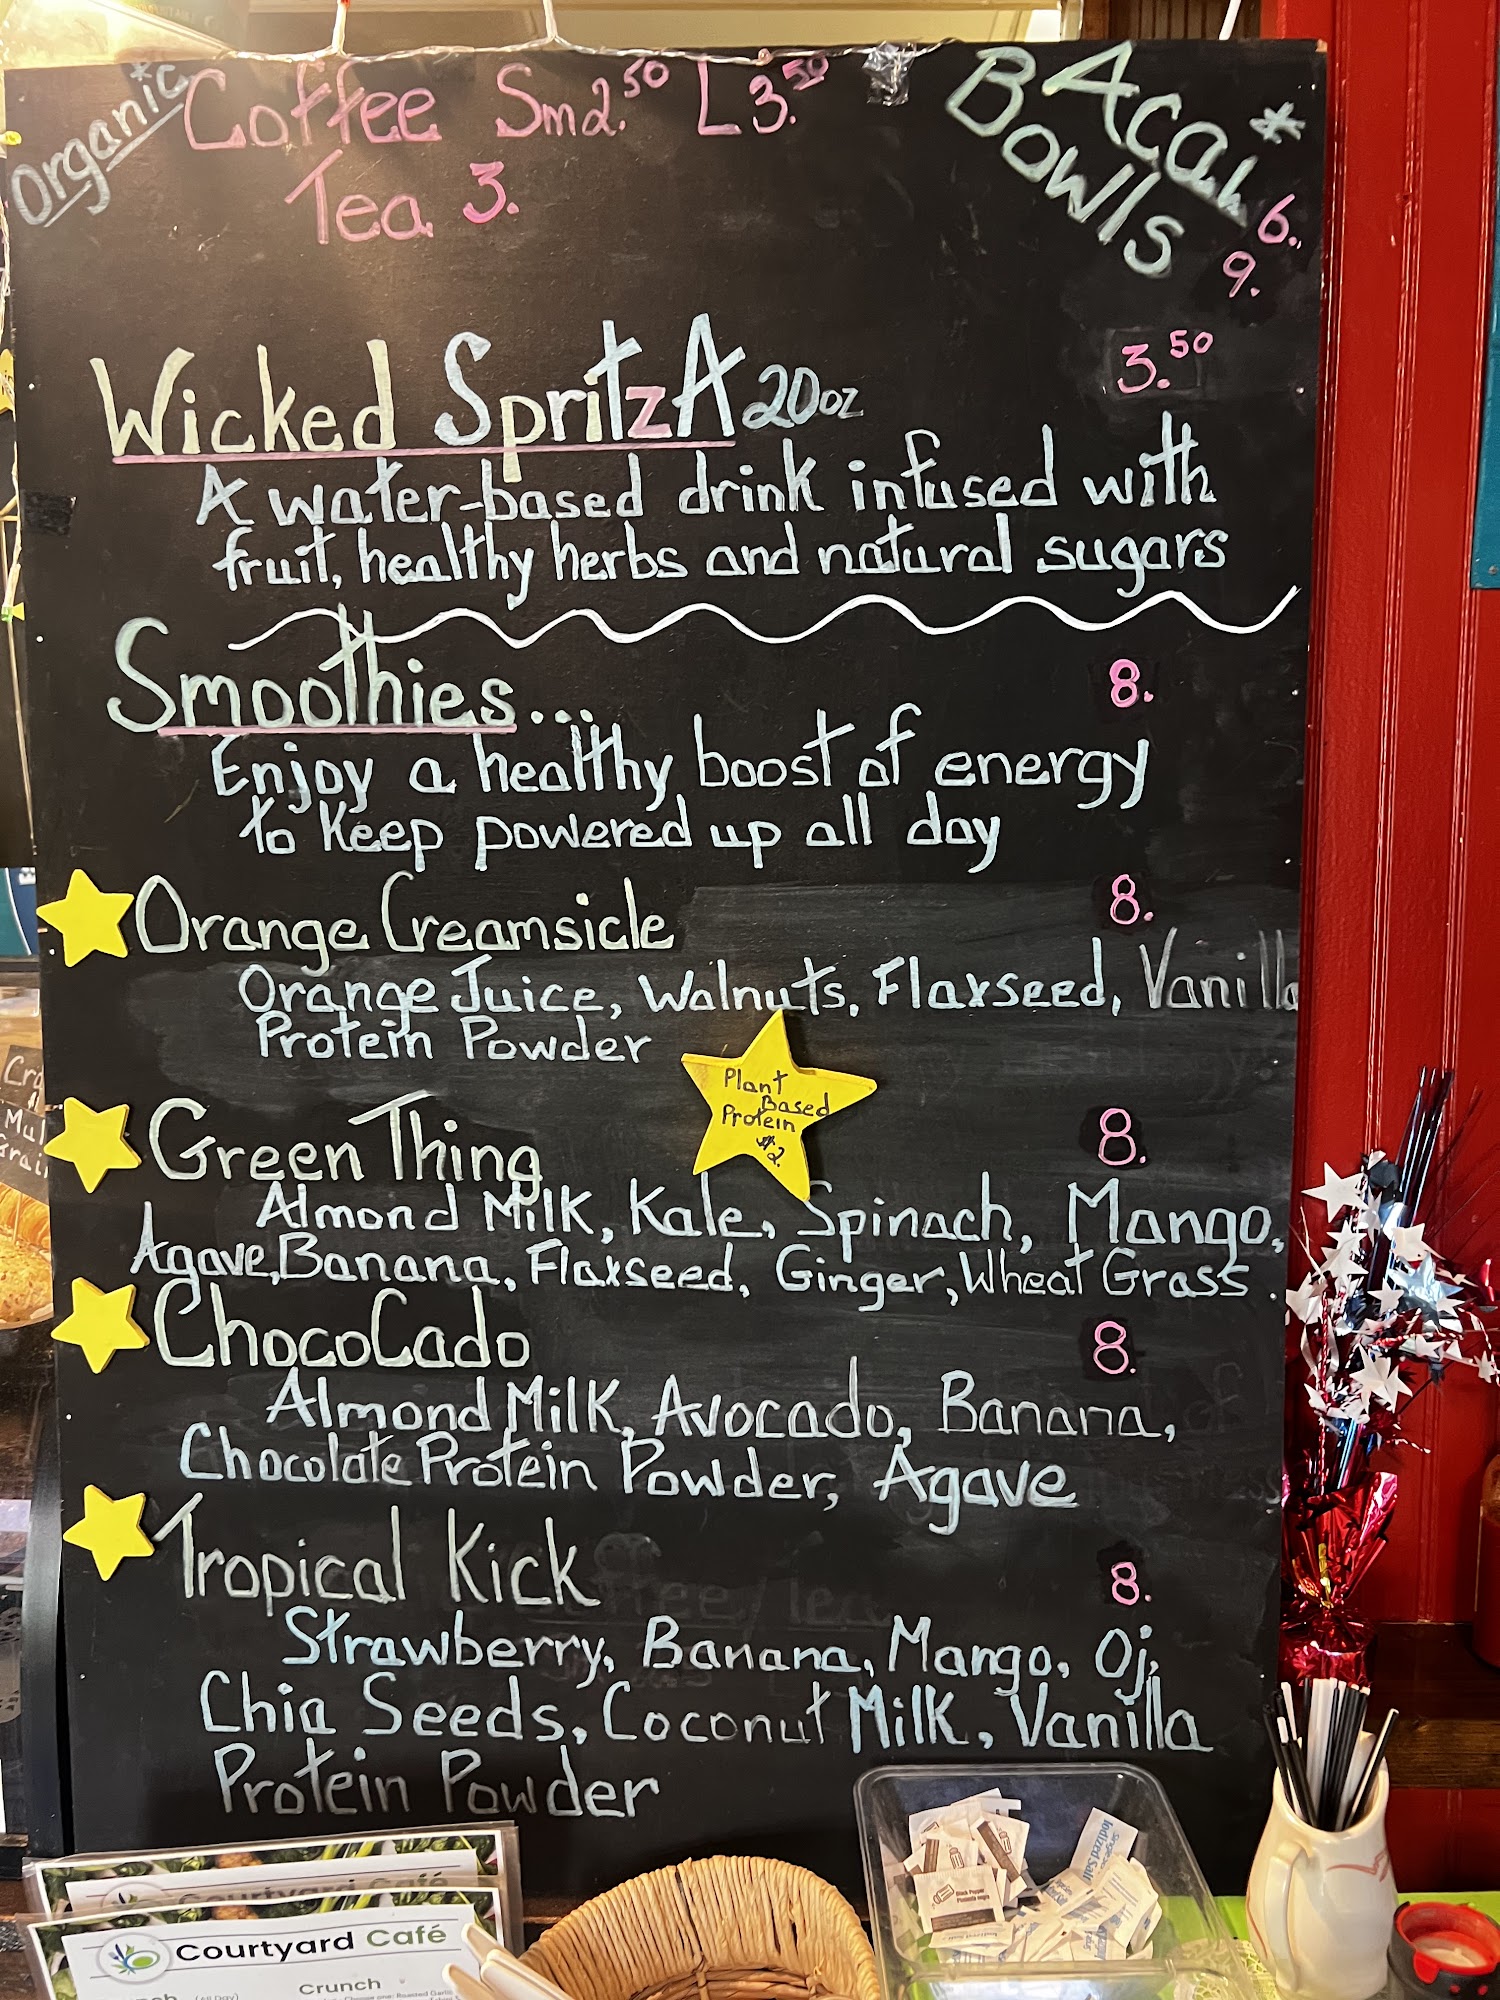 Organic* Coffee Sm2.50 L3.50
Tea 3.
Acai* Bowls 6.
9.
Wicked SpritzA 20oz 3.50
A water-based drink infused with
fruit, healthy herbs and natural sugars
Smoothies... 8.
Enjoy a healthy boost of energy
to keep powered up all day
Orange Creamsicle 8.
Orange Juice, Walnuts, Flaxseed, Vanilla
Protein Powder
Plant
Based
Protein
$2.
Green Thing 8.
Almond Milk, Kale, Spinach, Mango,
Agave, Banana, Flaxseed, Ginger, Wheat Grass.
ChocoCado 8.
Almond Milk, Avocado, Banana,
Chocolate Protein Powder, Agave
Tropical Kick 8.
Strawberry, Banana, Mango, Oj,
Chia Seeds, Coconut Milk, Vanilla
Protein Powder
Courtyard Café
Courtyard Café
Crunch
(All Day)
Iodized Salt
Black Pepper